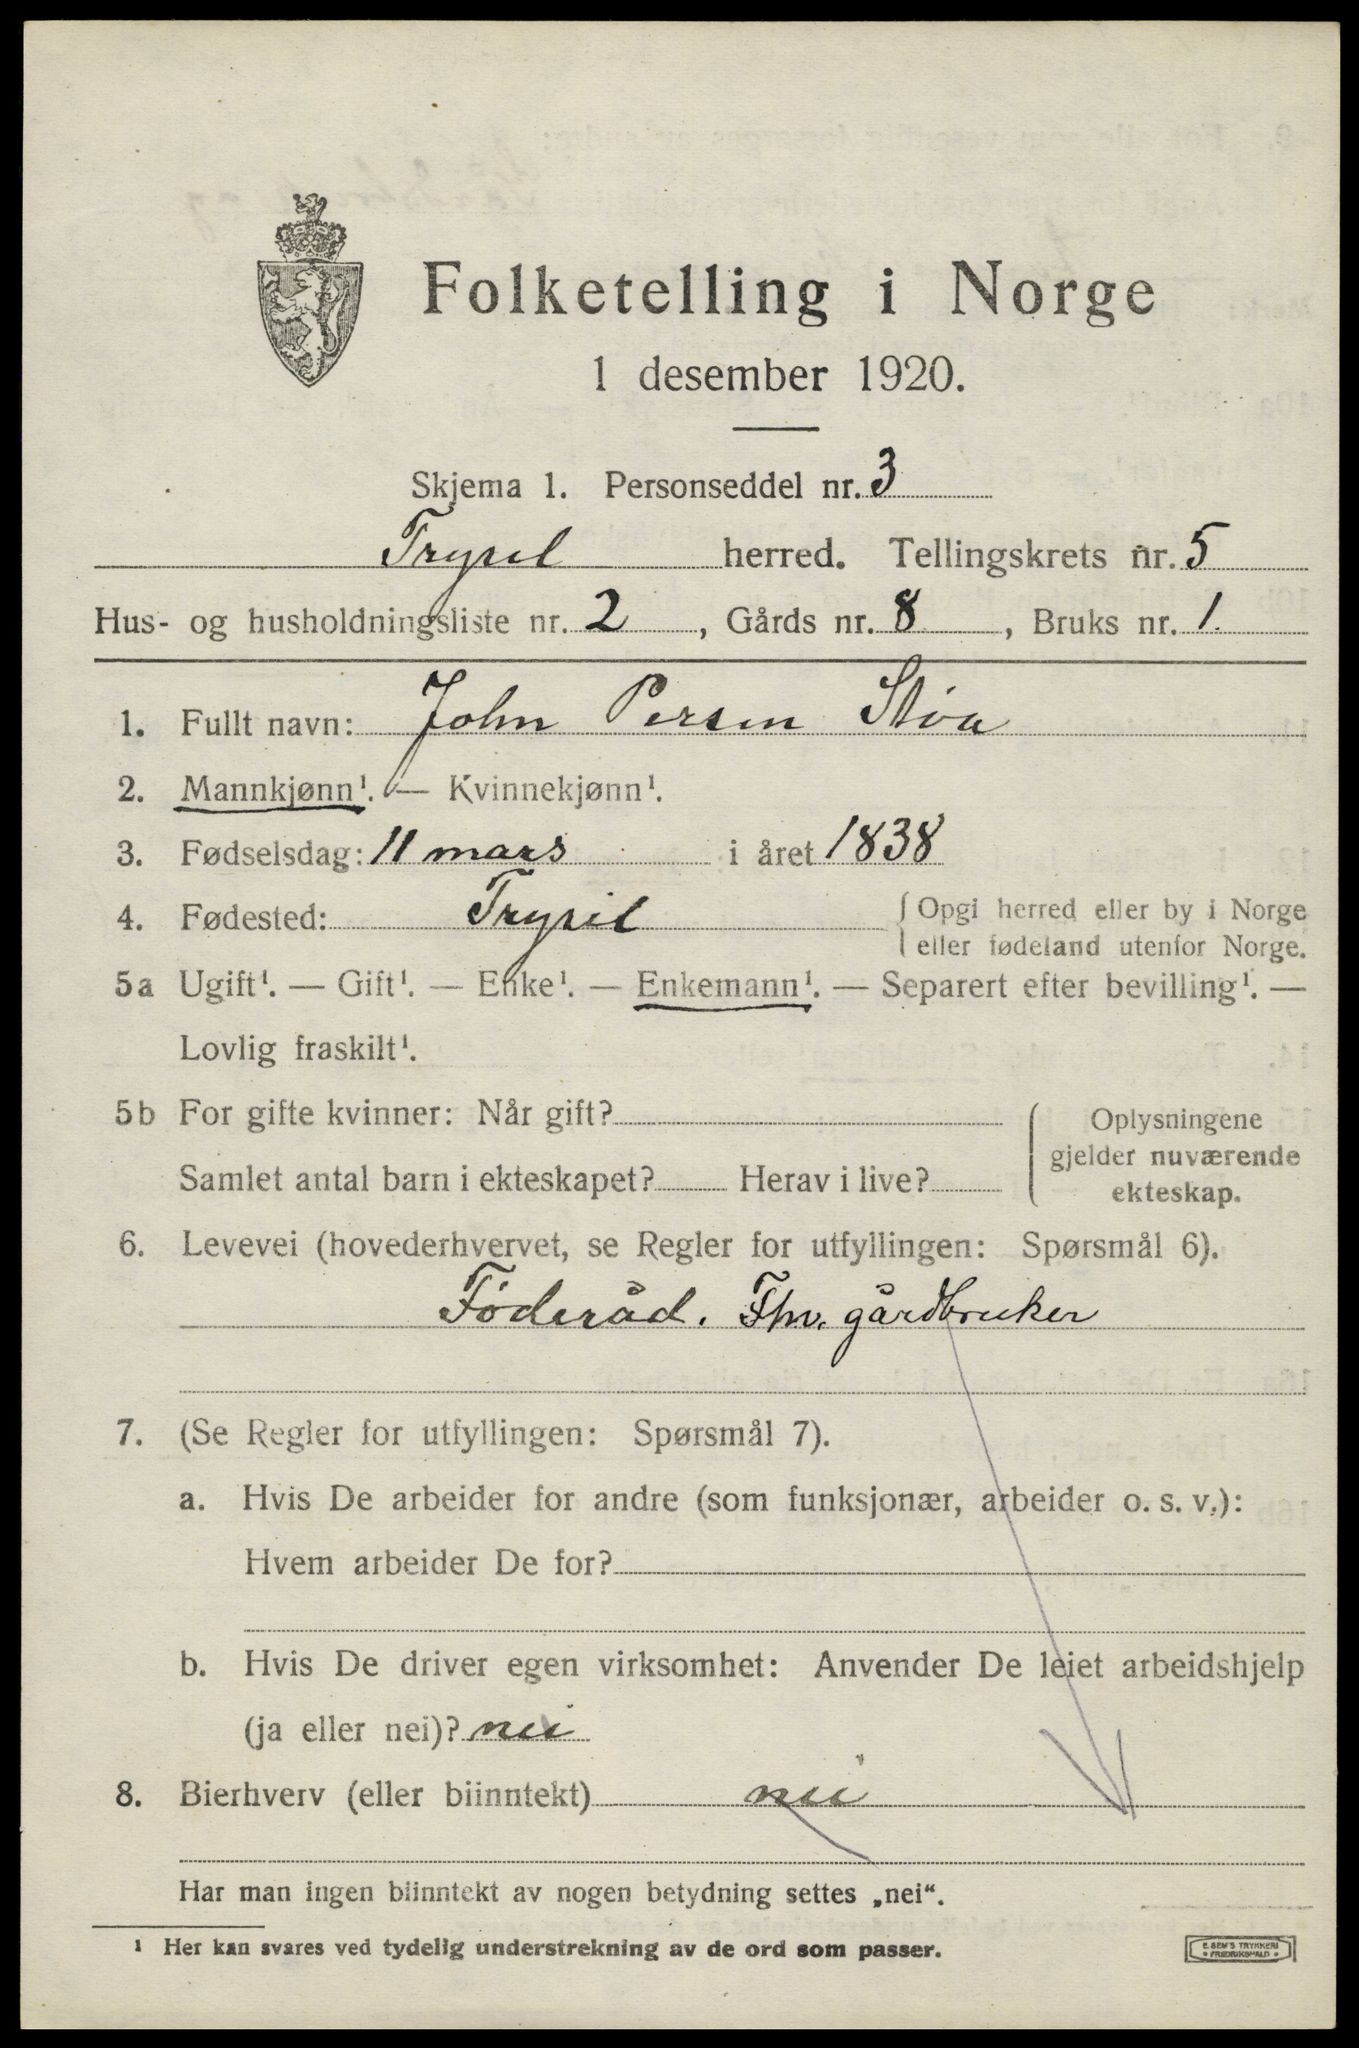 Folketelling i Norge
1 desember 1920.
Skjema 1. Personseddel nr. 3
Trysil herred. Tellingskrets nr. 5
Hus- og husholdningsliste nr. 2, Gårds nr. 8, Bruks nr. 1.
1. Fullt navn: John Persen Støa
2. Mannkjønn¹. — Kvinnekjønn¹.
3. Fødselsdag: 11 mars i året 1838
4. Fødested: Trysil { Opgi herred eller by i Norge
eller fødeland utenfor Norge.
5a Ugift¹. — Gift¹. — Enke¹. — Enkemann¹. — Separert efter bevilling¹. —
Lovlig fraskilt¹.
5b For gifte kvinner: Når gift? { Oplysningene
gjelder nuværende
Samlet antal barn i ekteskapet? Herav i live? ekteskap.
6. Levevei (hovederhvervet, se Regler for utfyllingen: Spørsmål 6).
Föderåd. Fhv. gårdbruker
7. (Se Regler for utfyllingen: Spørsmål 7).
a. Hvis De arbeider for andre (som funksjonær, arbeider o. s. v.):
Hvem arbeider De for?
b. Hvis De driver egen virksomhet: Anvender De leiet arbeidshjelp
(ja eller nei)? nei
8. Bierhverv (eller biinntekt) nei
Har man ingen biinntekt av nogen betydning settes „nei“.
¹ Her kan svares ved tydelig understrekning av de ord som passer.
E. SEM'S TRYKKERI
• FREDRIKSHALD •